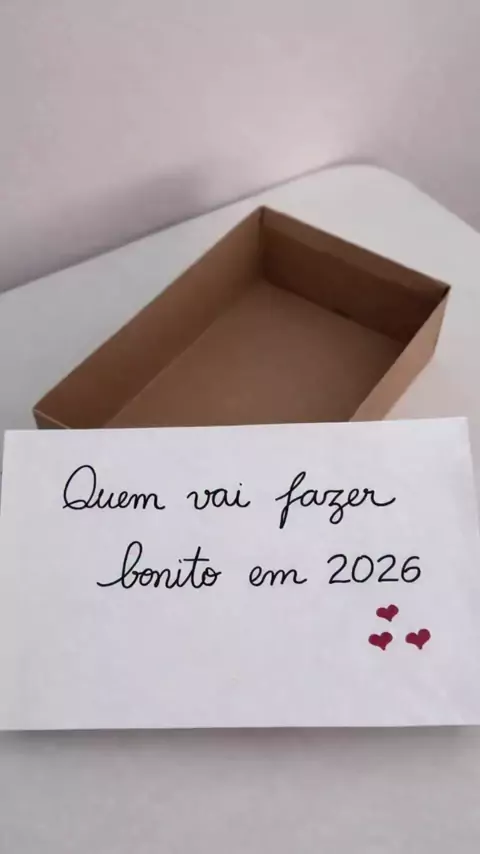 Quem vai fazer
bonito em 2026